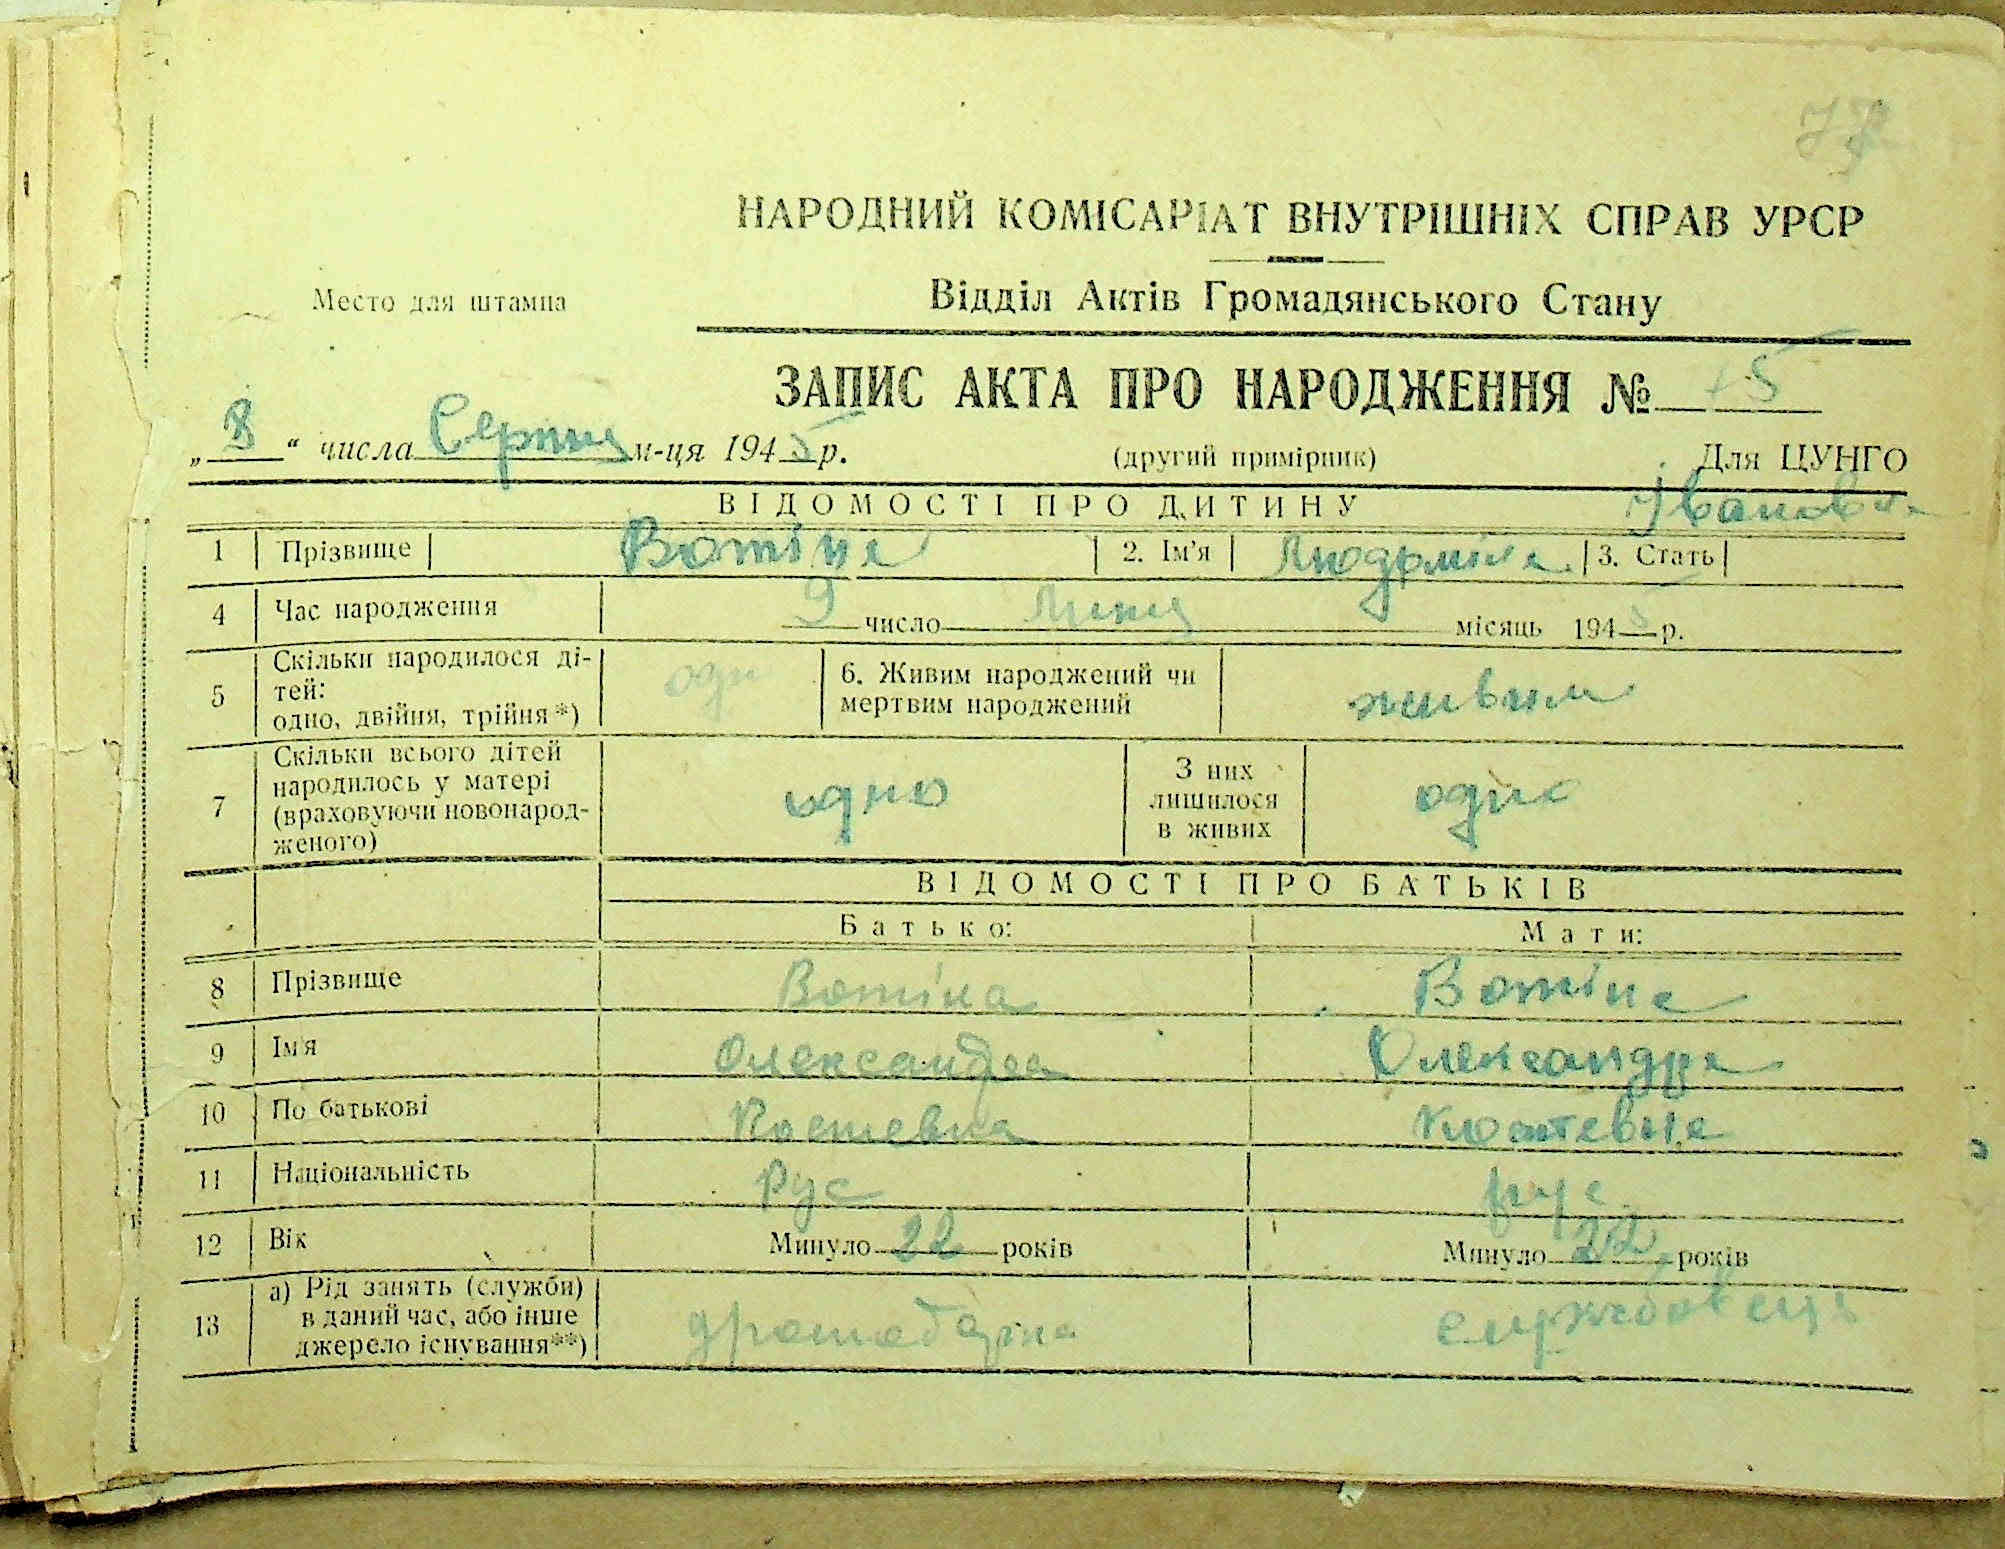 НАРОДНИЙ КОМІСАРІАТ ВНУТРІШНІХ СПРАВ УРСР
Место для штампа
Відділ Актів Громадянського Стану
ЗАПИС АКТА ПРО НАРОДЖЕННЯ №
„ 8 “ числа Серпня м-ця 1945 р. (другий примірник) Для ЦУНГО
ВІДОМОСТІ ПРО ДИТИНУ
1 Прізвище Вотіна 2. Ім'я Людміла 3. Стать
4 Час народження 9 число Липня місяць 1945 р.
5 Скільки народилося ді-
тей:
одно, двійня, трійня*)
6. Живим народжений чи
мертвим народжений
живим
7 Скільки всього дітей
народилось у матері
(враховуючи новонарод-
женого)
одно
З них
лишилося
в живих
одно
ВІДОМОСТІ ПРО БАТЬКІВ
Батько: Мати:
8 Прізвище Вотіна Вотіна
9 Ім'я Олександра Олександра
10 По батькові
11 Національність Рус рус
12 Вік Минуло 22 років Минуло 22 років
13 а) Рід занять (служби)
в даний час, або інше
джерело існування**)
службовець